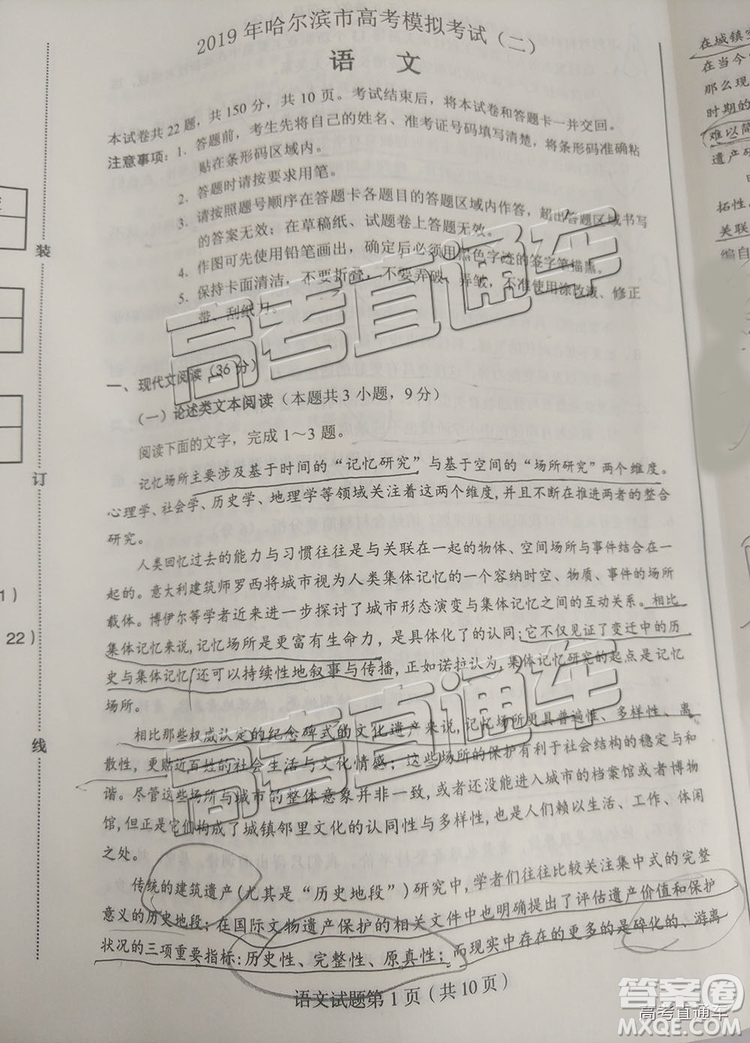 2019年哈尔滨市高考模拟考试(二)
语 文
本试卷共22题，共150分，共10页。考试结束后，将本试卷和答题卡一并交回。
注意事项：1. 答题前，考生先将自己的姓名、准考证号码填写清楚，将条形码准确粘
贴在条形码区域内。
2. 答题时请按要求用笔。
3. 请按照题号顺序在答题卡各题目的答题区域内作答，超出答题区域书写
的答案无效；在草稿纸、试题卷上答题无效。
4. 作图可先使用铅笔画出，确定后必须用黑色字迹的签字笔描黑。
5. 保持卡面清洁，不要折叠，不要弄破、弄皱，不准使用涂改液、修正
带、刮纸刀。
一、现代文阅读（36分）
（一）论述类文本阅读（本题共3小题，9分）
阅读下面的文字，完成1～3题。
记忆场所主要涉及基于时间的“记忆研究”与基于空间的“场所研究”两个维度。
心理学、社会学、历史学、地理学等领域关注着这两个维度，并且不断在推进两者的整合
研究。
人类回忆过去的能力与习惯往往是与关联在一起的物体、空间场所与事件结合在一
起的。意大利建筑师罗西将城市视为人类集体记忆的一个容纳时空、物质、事件的场所
载体。博伊尔等学者近来进一步探讨了城市形态演变与集体记忆之间的互动关系。相比
集体记忆来说，记忆场所是更富有生命力，是具体化了的认同；它不仅见证了变迁中的历
史与集体记忆，还可以持续性地叙事与传播，正如诺拉认为，集体记忆研究的起点是记忆
场所。
相比那些权威认定的纪念碑式的文化遗产来说，记忆场所更具普遍性、多样性、离
散性，更贴近百姓的社会生活与文化情感；这些场所的保护有利于社会结构的稳定与和
谐。尽管这些场所与城市的整体意象并非一致，或者还没能进入城市的档案馆或者博物
馆，但正是它们构成了城镇邻里文化的认同性与多样性，也是人们赖以生活、工作、休闲
之处。
传统的建筑遗产（尤其是“历史地段”）研究中，学者们往往比较关注集中式的完整
意义的历史地段；在国际文物遗产保护的相关文件中也明确提出了评估遗产价值和保护
状况的三项重要指标：历史性、完整性、原真性；而现实中存在的更多的是碎化的、游离
语文试题第1页（共10页）
装
订
线
1)
22)
在城镇
在当今
那么现
时期的
难以简
遗产研
拓性、
关联
编自
高考直通车
高考直通车
答案圈
高考直通车
MXQE.COM